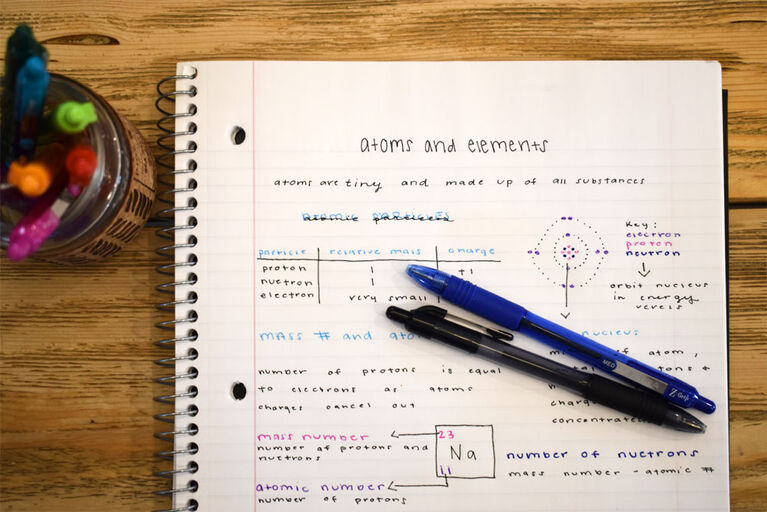 atoms and elements
atoms are tiny and made up of all substances
atomic particles
Key:
electron
proton
neutron
orbit nucleus
in energy
particle relative mass charge
proton 1 +1
nuetron 1
electron very small
mass # and
nucleus
of atom,
number of protons is equal
to electrons as atoms
charges cancel out
mass number
number of protons and
nuetrons
23
Na
11
atomic number
number of protons
number of neutrons
mass number - atomic #
MED
Z-Grip